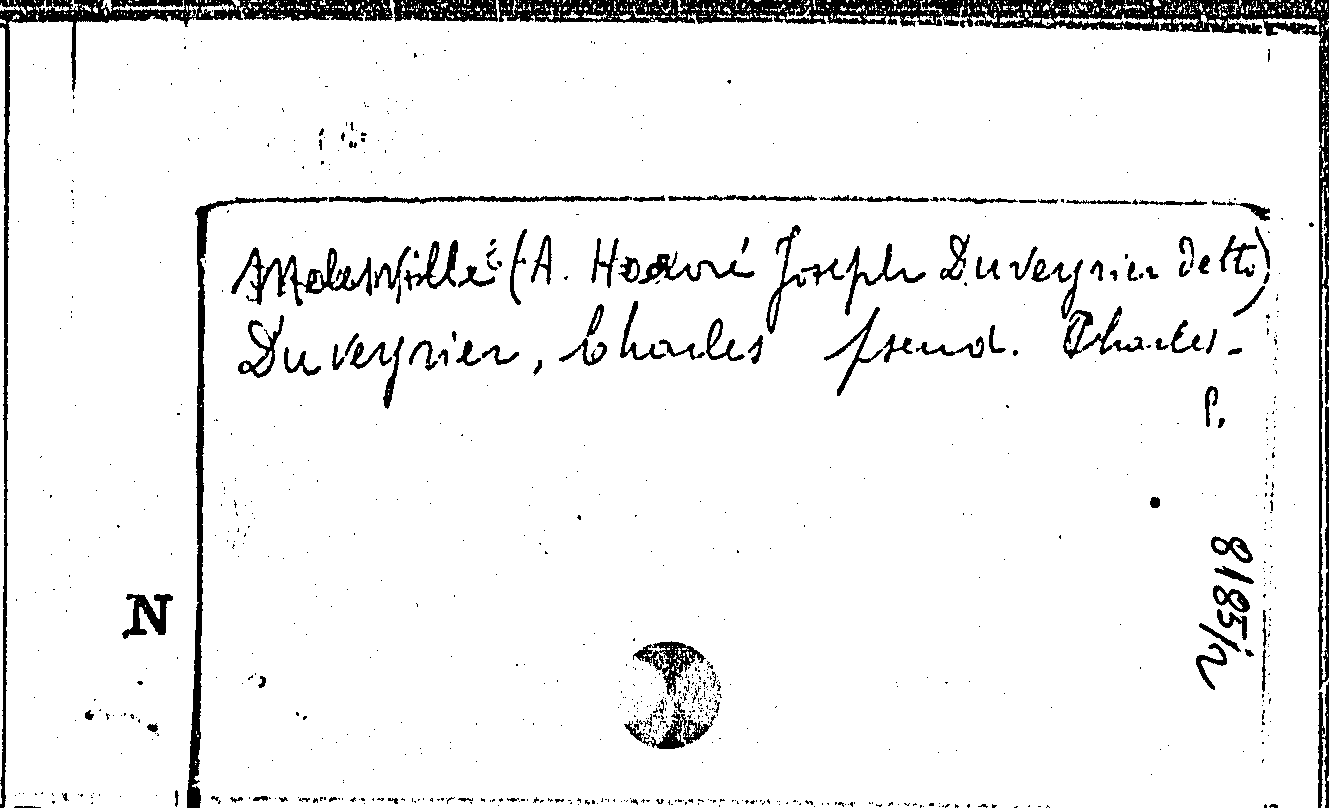 Melesville (A. Honoré Joseph Duveyrier detto)
Duveyrier, Charles pseud. Charles-
P.
8185/2
N